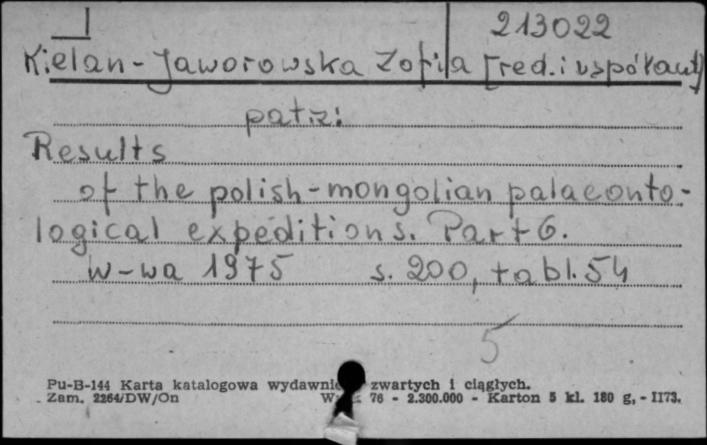 I 213022
Kielan-Jaworowska Zofia [red. i współaut]
patrz:
Results
of the polish-mongolian palaeonto-
logical expeditions. Part 6.
W-wa 1975 s. 200, tabl. 54
5
Pu-B-144 Karta katalogowa wydawnic zwartych i ciągłych.
Zam. 2264/DW/On 76 - 2.300.000 - Karton 5 kl. 180 g, - II73.